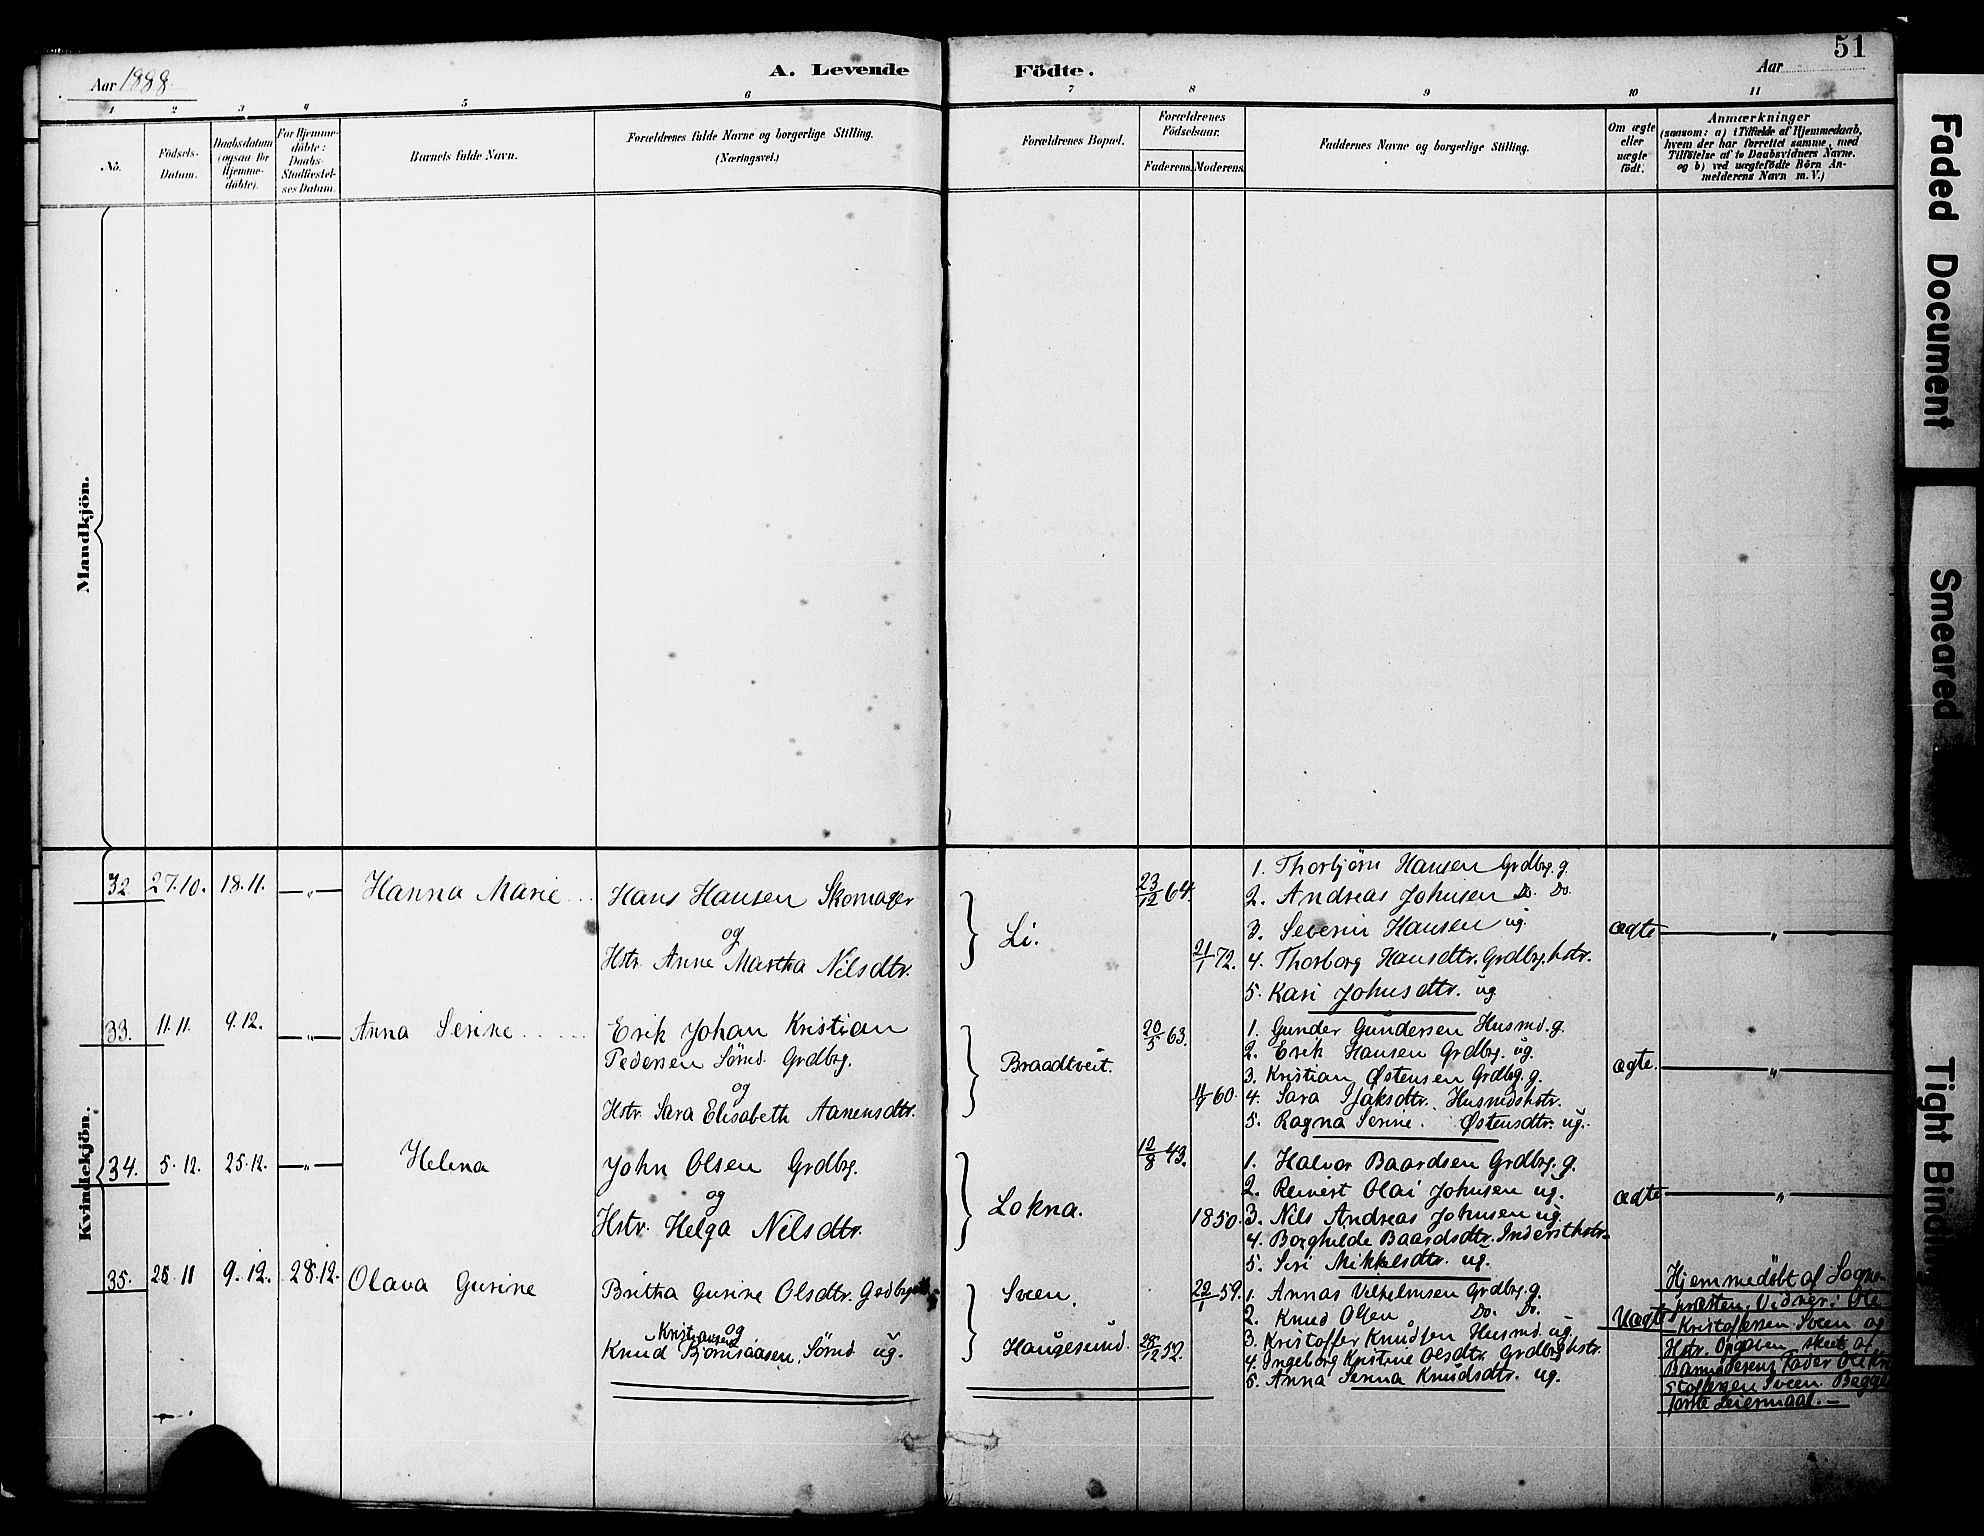 51
Aar 1888
A. Levende Födte.
Aar
1 2 3 4 5 6 7 8 9 10 11
No.
Födsels-
Datum.
Daabsdatum
(ogsaa for
Hjemme-
döbte).
For Hjemme-
döbte:
Daabs-
Stadfæstel-
ses Datum.
Barnets fulde Navn.
Forældrenes fulde Navne og borgerlige Stilling.
(Næringsvei.)
Forældrenes Bopæl.
Forældrenes
Födselsaar.
Faderens. Moderens.
Faddernes Navne og borgerlige Stilling.
Om ægte
eller
uægte
født.
Anmærkninger
(saasom: a) i Tilfælde af Hjemmedaab,
hvem der har forrettet samme, med
Tilföielse af to Daabsvidners Navne,
og b) ved uægtefödte Börn An-
melderens Navn m. V.)
Mandkjön.
Kvindekjön.
32 27.10. 18.11. — " — Hanna Marie
Hans Hansen Skomager
og
Hstr. Anne Martha Nilsdtr.
Li.
23/12 64.
21/1 72.
1. Thorbjørn Hansen Grdbrg. g.
2. Andreas Johnsen Do. Do.
3. Severin Hansen ug.
4. Thorborg Hansdtr. Grdbrg.hstr.
5. Kari Johnsdtr. ug.
ægte — " —
33. 11.11. 9.12. — " — Anna Serine
Erik Johan Kristian
Pedersen Sømd. Grdbrg.
og
Hstr. Sara Elisabeth Aanensdtr.
Braadtveit.
20/5 63.
60.
1. Gunder Gundersen Husmd. g.
2. Erik Hansen Grdbrg. ug.
3. Kristian Østensen Grdbrg. g.
4. Sara Isaksdtr. Husmdshstr.
5. Ragna Serine Østensdtr. ug.
ægte. — " —
34. 5.12. 25.12. — " — Helena
John Olsen Grdbrg.
og
Hstr. Helga Nilsdtr.
Lokna.
12/8 43.
1850.
1. Halvor Baardsen Grdbrg. g.
2. Reinert Olai Johnsen ug.
3. Nils Andreas Johnsen ug.
4. Borghilde Baardsdtr.Indersthstr.
5. Siri Mikkelsdtr. ug.
ægte — " —
35. 25.11 9.12. 28.12. Olava Gurine
Britha Gurine Olsdtr.
og
Kristiansen
Knud Bjørnsaasen, Sømd ug.
Sveen.
Haugesund.
22/1 59.
28/12 52.
1. Annas Vilhelmsen Grdbrg. g.
2. Knud Olsen Do. Do.
3. Kristoffer Knudsen Husmd. ug.
4. Ingeborg Kristine Olsdtr. Grdbrghstr.
5. Anna Serina Knudsdtr. ug.
Uægte
Hjemmedøbt af Sogne-
præsten. Vidner: Ole
Kristoffersen Sveen og
Hstr. Opgaven skeet af
Barnets Fader Ole Kri
stoffersen Sveen Begges
første Leiermaal. —
Faded Document
Smeared
Tight Binding